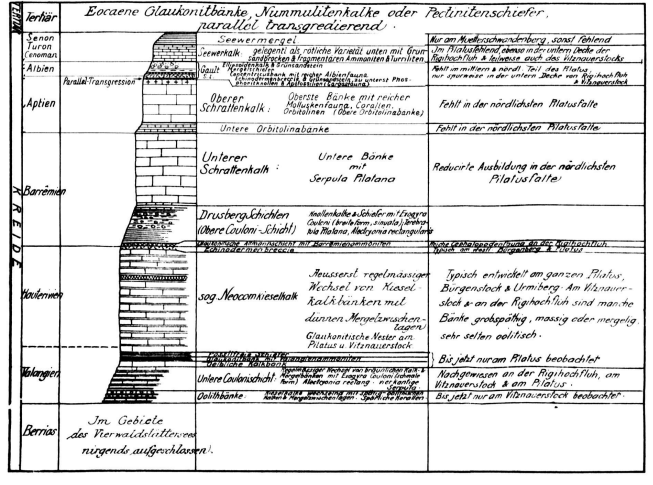 TERTIÄR
Tertiär
Eocaene Glaukonitbänke, Nummulitenkalke oder Pectinitenschiefer,
parallel transgredierend.
KREIDE
Senon
Turon
Cenoman
Seewermergel
Nur am Muetterschwandenberg, sonst fehlend
Seewerkalk,
gelegentl. als rötliche Varietät unten mit Grün-
sandbrocken & fragmentären Ammoniten & Turriliten.
Im Pilatus fehlend, ebenso in der untern Decke der
Rigihochfluh & teilweise auch des Vitznauerstocks
Albien
Parallel-Transgression
Gault
Concentricusbank mit reicher Albienfauna
Fehlt im mittlern & nördl. Teil des Pilatus,
nur spurweise in der untern Decke von Rigihochfluh
& Vitznauerstock
Aptien
Oberer
Schrattenkalk:
Oberste Bänke mit reicher
Molluskenfauna, Corallen,
Orbitolinen (Obere Orbitolinabänke)
Fehlt in der nördlichsten Pilatusfalte
Untere Orbitolinabänke
Fehlt in der nördlichsten Pilatusfalte
Barrêmien
Unterer
Schrattenkalk:
Untere Bänke
mit
Serpula Pilatana
Reducirte Ausbildung in der nördlichsten
Pilatusfalte
Drusberg Schichten
(Obere Couloni-Schicht)
Knollenkalke & Schiefer mit Exogyra
Couloni (breite form, sinuata), Terebra-
tula Pilatana, Alectryonia rectangularis
Altmannschicht mit Barrêmienammoniten
Reiche Cephalopodenfauna an der Rigihochfluh.
Echinodermenbreccie
Typisch am Bürgenberg & Pilatus
Hauterivien
sog. Neocomkieselkalk
Aeusserst regelmässiger
Wechsel von Kiesel-
kalkbänken mit
dünnen Mergelzwischen-
lagen)
Glaukonitische Nester am
Pilatus u. Vitznauerstock
Typisch entwickelt am ganzen Pilatus,
Bürgenstock & Urmiberg. Am Vitznauer-
stock & an der Rigihochfluh sind manche
Bänke grobspäthig, massig oder mergelig,
sehr selten oolitisch.
Valangien
Fossilfreie Schiefer
Glaukonitbank mit Valangienammoniten
Gelbliche Kalkbank
Bis jetzt nur am Pilatus beobachtet
Untere Coulonischicht:
Regelmässiger Wechsel von bräunlichen Kalk- &
Mergelbänken mit Exogyra Couloni (schmale
Form) Alectryonia rectang. nerkantige
Serpula
Nachgewiesen an der Rigihochfluh, am
Vitznauerstock & am Pilatus.
Oolithbänke:
Bis jetzt nur am Vitznauerstock beobachtet.
Berrias
Im Gebiete
des Vierwaldstättersees
nirgends aufgeschlossen).